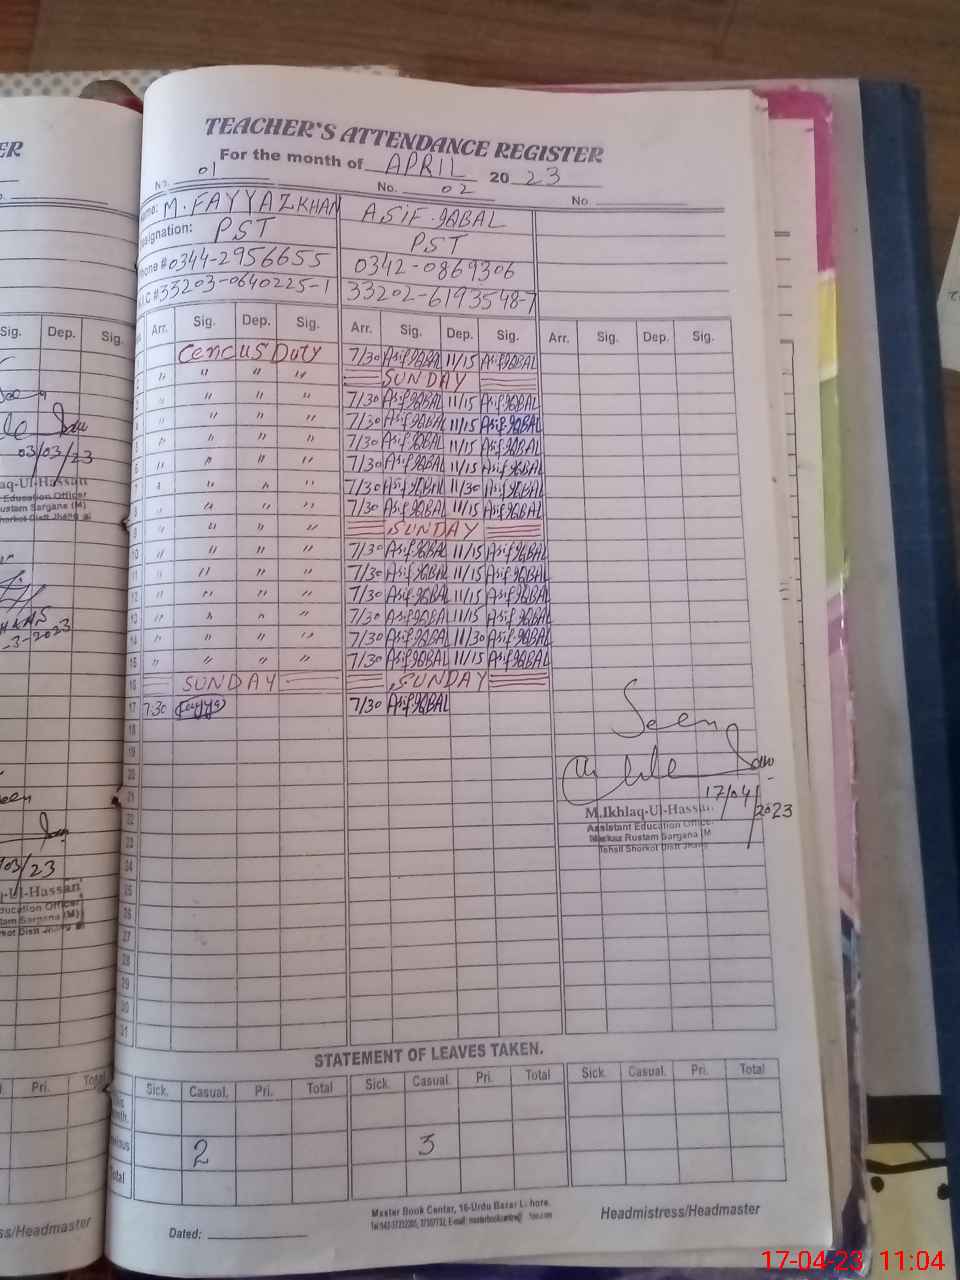 ER
TEACHER'S ATTENDANCE REGISTER
For the month of APRIL 20 23
No. 01 No. 02 No.
Name: M. FAYYAZ KHAN ASIF IQBAL
Designation: PST PST
Phone # 0344-2956655 0342-0869306
N.I.C # 33203-0640225-1 33202-6193548-7
Sig. Dep. Sig.
Arr. Sig. Dep. Sig. Arr. Sig. Dep. Sig. Arr. Sig. Dep. Sig.
Cencus Duty 7/30 Asif IQBAL 11/15 Asif IQBAL
2 " " " " SUNDAY
3 " " " " 7/30 Asif IQBAL 11/15 Asif IQBAL
4 " " " " 7/30 Asif IQBAL 11/15 Asif IQBAL
5 " " " " 7/30 Asif IQBAL 11/15 Asif IQBAL
6 " " " " 7/30 Asif IQBAL 11/15 Asif IQBAL
7 " " " " 7/30 Asif IQBAL 11/30 Asif IQBAL
8 " " " " 7/30 Asif IQBAL 11/15 Asif IQBAL
9 " " " " SUNDAY
10 " " " " 7/30 Asif IQBAL 11/15 Asif IQBAL
11 " " " " 7/30 Asif IQBAL 11/15 Asif IQBAL
12 " " " " 7/30 Asif IQBAL 11/15 Asif IQBAL
13 " " " " 7/30 Asif IQBAL 11/15 Asif IQBAL
14 " " " " 7/30 Asif IQBAL 11/30 Asif IQBAL
15 " " " " 7/30 Asif IQBAL 11/15 Asif IQBAL
16 SUNDAY SUNDAY
17 7:30 7/30 Asif IQBAL
18
19
20
21
22
23
24
25
26
27
28
29
30
31
Seen
17/04/2023
M.Ikhlaq-Ul-Hassan
Assistant Education Officer
Markaz Rustam Sargana (M
Tehsil Shorkot Distt Jhang
03/03/23
aq-Ul-Hassan
Education Officer
Rustam Sargana (M)
horkot Distt Jhang
-3-2023
03/23
q-Ul-Hassan
ducation Officer
tam Sargana (M)
rkot Distt Jhang
STATEMENT OF LEAVES TAKEN.
Pri. Total
Sick. Casual. Pri. Total Sick. Casual. Pri. Total Sick. Casual. Pri. Total
2 3
Total
ss/Headmaster
Dated:
Master Book Center, 16-Urdu Bazar Lahore.
Headmistress/Headmaster
17-04-23 11:04